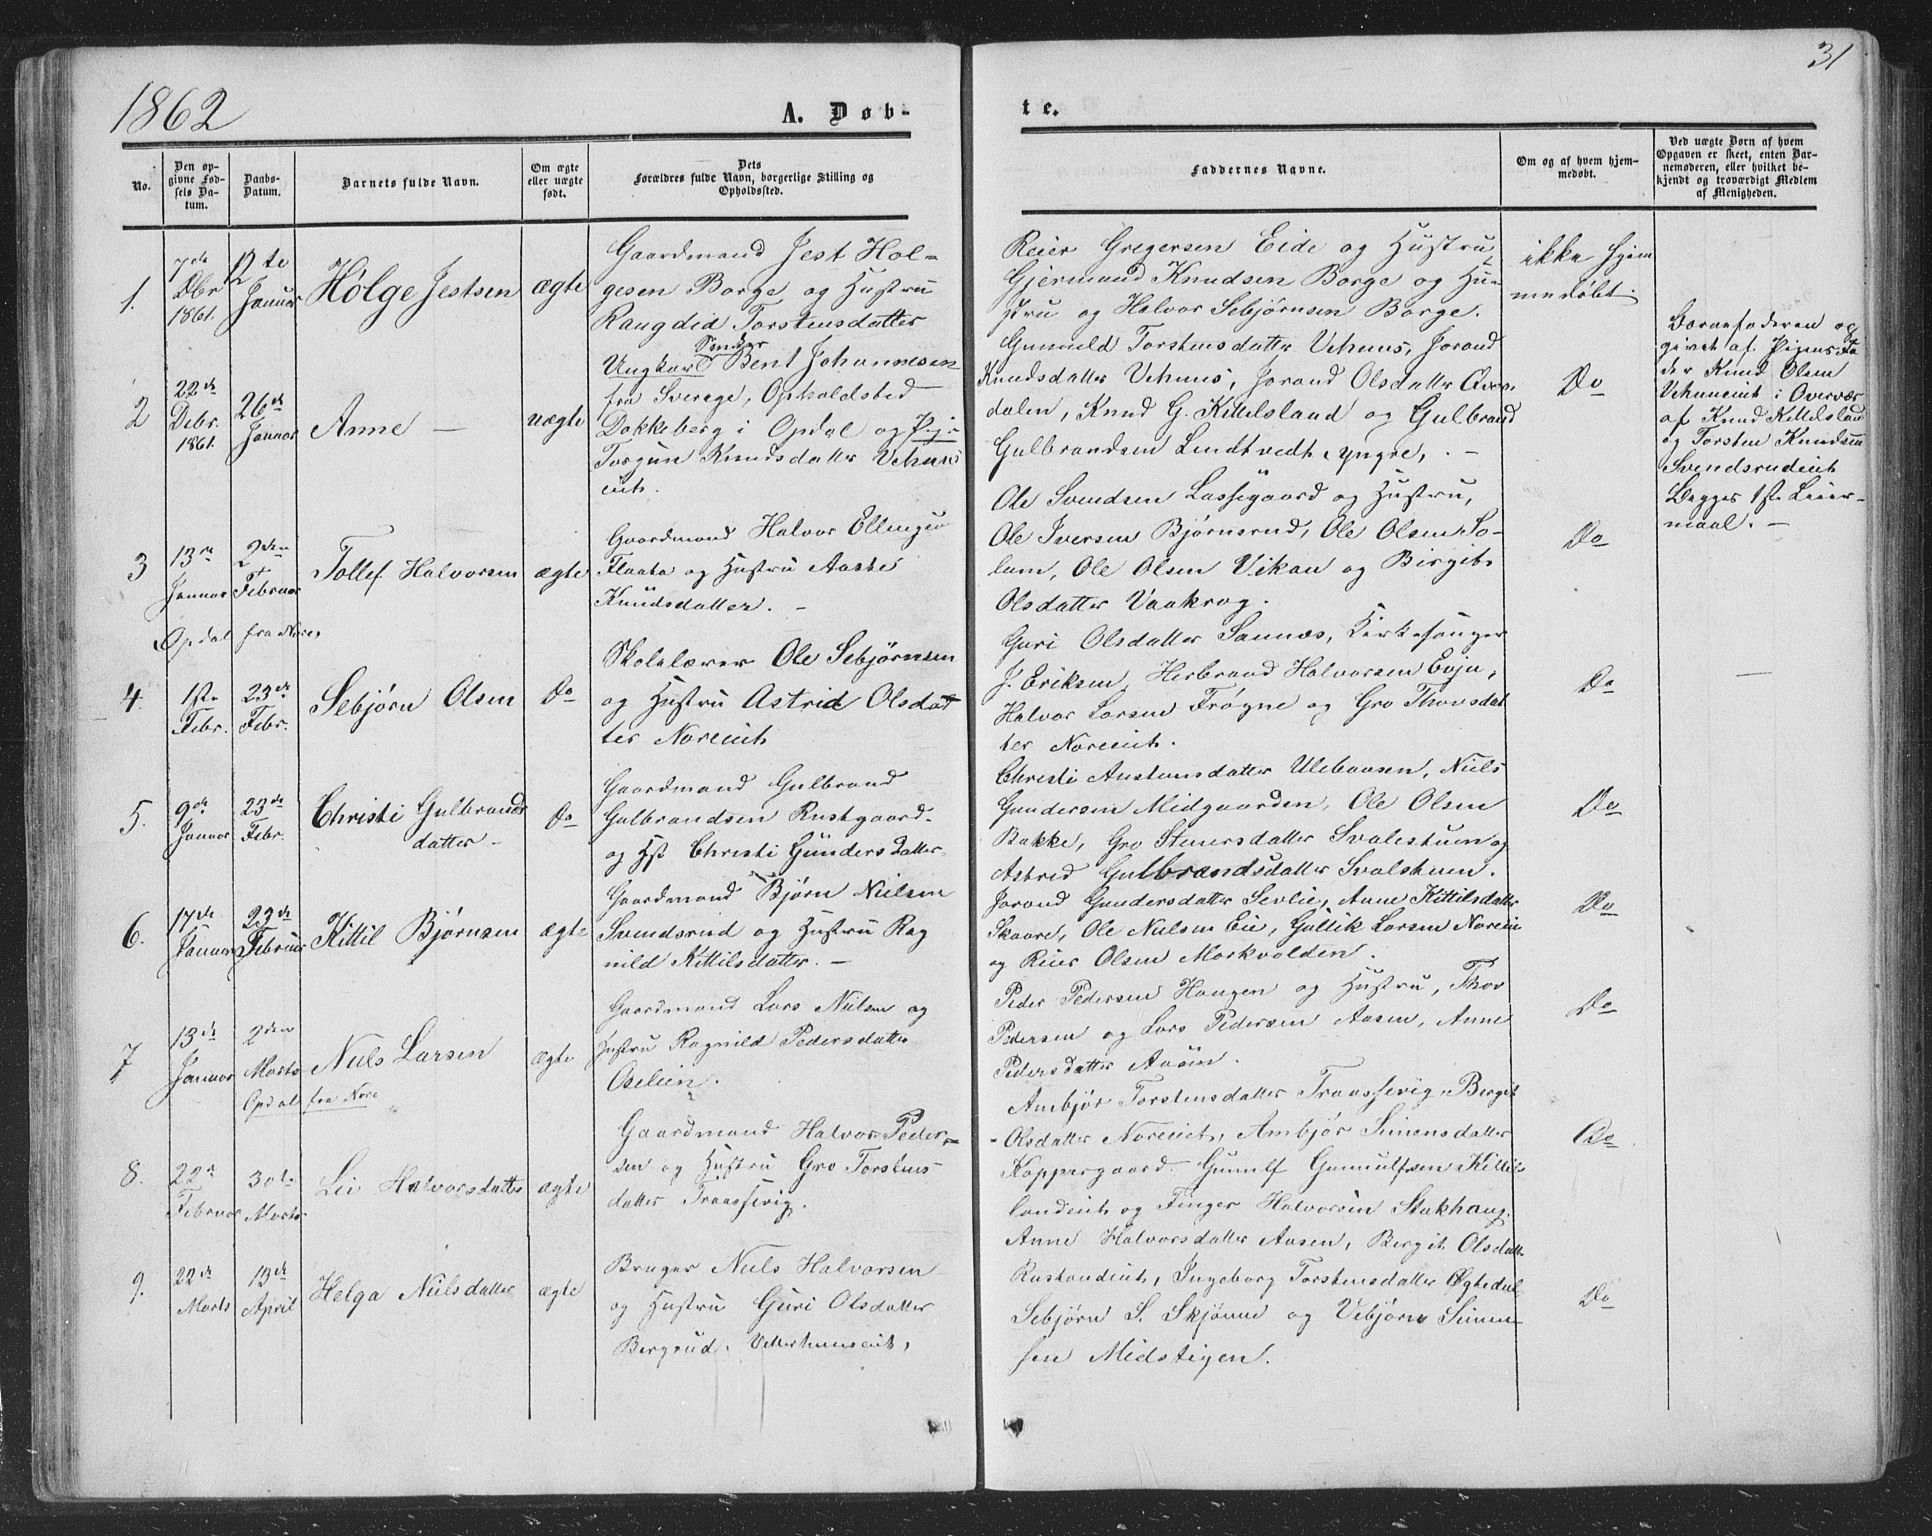 1862
A. Døb-
te.
31
No.
Den op-
givne Fød-
sels Da-
tum.
Daabs-
Datum.
Barnets fulde Navn.
Om ægte
eller uægte
født.
Dets
Forældres fulde Navn, borgerlige Stilling og
Opholdssted.
Faddernes Navne.
Om og af hvem hjem-
medøbt.
Ved uægte Børn af hvem
Opgaven er skeet, enten Bar-
nemoderen, eller hvilket be-
kjendt og troværdigt Medlem
af Menigheden.
1.
7de
Dbr
1861.
12te
Januar
Hølge Jestsen
ægte
Gaardmand Jest Hol-
gesen Borge og Hustru
Rangdid Torstensdatter
Reier Gregersen Eide og Hustru,
Gjermund Knudsen Borge og Hu-
stru og Halvor Sebjørnsen Borge.
ikke hjem
medøbt.
2
22de
Debr.
1861.
26de
Januar
Anne —
uægte
Ungkarl Smeker Bent Johannesen
fra Sverige, Opholdsted
Dokkeberg i Opdal og Pige
Torgun Knudsdatter Vehuus
eiet.
Gunnild Torstensdatter Vehuus, Jorand
Knudsdatter Vehuus, Jorand Olsdatter Over
dalen, Knud G. Kittelsland og Gulbrand
Gulbrandsen Lundtvedt yngre, . —
Do
Barnefaderen op
givet af Pigens Fa
der Knud Olsen
Vehuneiet i Overvær
af Knud Kittelsland
og Torsten Knudsen
Svendsrudeiet
Begges 1ste Leier-
maal. —
3
13de
Januar
2den
Februar
Opdal fra Nore,
Tollef Halvorsen
ægte
Gaardmand Halvor Ellingsen
Flaata og Hustru Aaste
Knudsdatter. —
Ole Svendsen Lassegaard og Hustru,
Ole Iversen Bjørnerud, Ole Olsen So-
lem, Ole Olsen Vikan og Birgit
Olsdatter Vaakrag.
Do
4.
1ste
Febr.
23de
Febr.
Sebjørn Olsen
Do
Skolelærer Ole Sebjørnsen
og Hustru Astrid Olsdat
ter Noreeiet
Guri Olsdatter Sannes, Kirkesanger
J. Eriksen, Herbrand Halvorsen Evju,
Halvor Larsen Frøgne og Gro Thorsdat
ter Noreeiet.
Do
5.
9de
Januar
23de
Febr.
Christi Gulbrands
datter —
Do
Gaardmand Gulbrand
Gulbrandsen Rustgaard
og Hst. Christi Gundersdatter
Christi Austensdatter Ulebaasen, Niels
Gundersen Midgaarden, Ole Olsen
Bakke, Gro Steenersdatter Svalestuen og
Astrid Gulbrandsdatter Svalstuen.
Do
6.
17de
Januar
23de
Februar
Kittil Bjørnsen
ægte
Gaardmand Bjørn Nielsen
Svendsrud og Hustru Rag
nild Kittilsdatter. —
Jorand Gundersdatter Sevlie, Anne Kittilsdatter
Skaare, Ole Nielsen Eie, Gullik Larsen Noreeie
og Reier Olsen Morkvolden.
Do
7
13de
Januar
2den
Marts
Opdal fra Nore
Niels Larsen
ægte
Gaardmand Lars Nielsen og
Hustru Ragnild Pedersdatter
Oselien.
Peder Pedersen Haugen og Hustru, Thor
Pedersen og Lars Pedersen Aasen, Anne
Pedersdatter Aasen.
Do
8.
22de
Februar
30te
Marts
Liv Halvorsdatter
ægte
Gaardmand Halvor Peder-
sen og Hustru Gro Torstens
datter Traassevig.
Ambjør Torstensdatter Traassevig, Berget
Olsdatter Noreeiet, Ambjør Simensdatter
Koppergaard. Gunulf Gunnulfsen Kittils
landeiet og Finger Halvorsen Stokhaug.
Do
9.
22de
Marts
13de
April
Helga Nielsdatter
ægte
Bruger Niels Halvorsen
og Hustru Guri Olsdatter
Bergrud. Vetterhuuseiet,
Anne Halvorsdatter Aasen, Bergit Olsdatter
Rustandeiet, Ingeborg Torstensdatter Øgtedal
Sebjørn S. Skjønne og Vebjørn Simen-
sen Midstigen.
Do